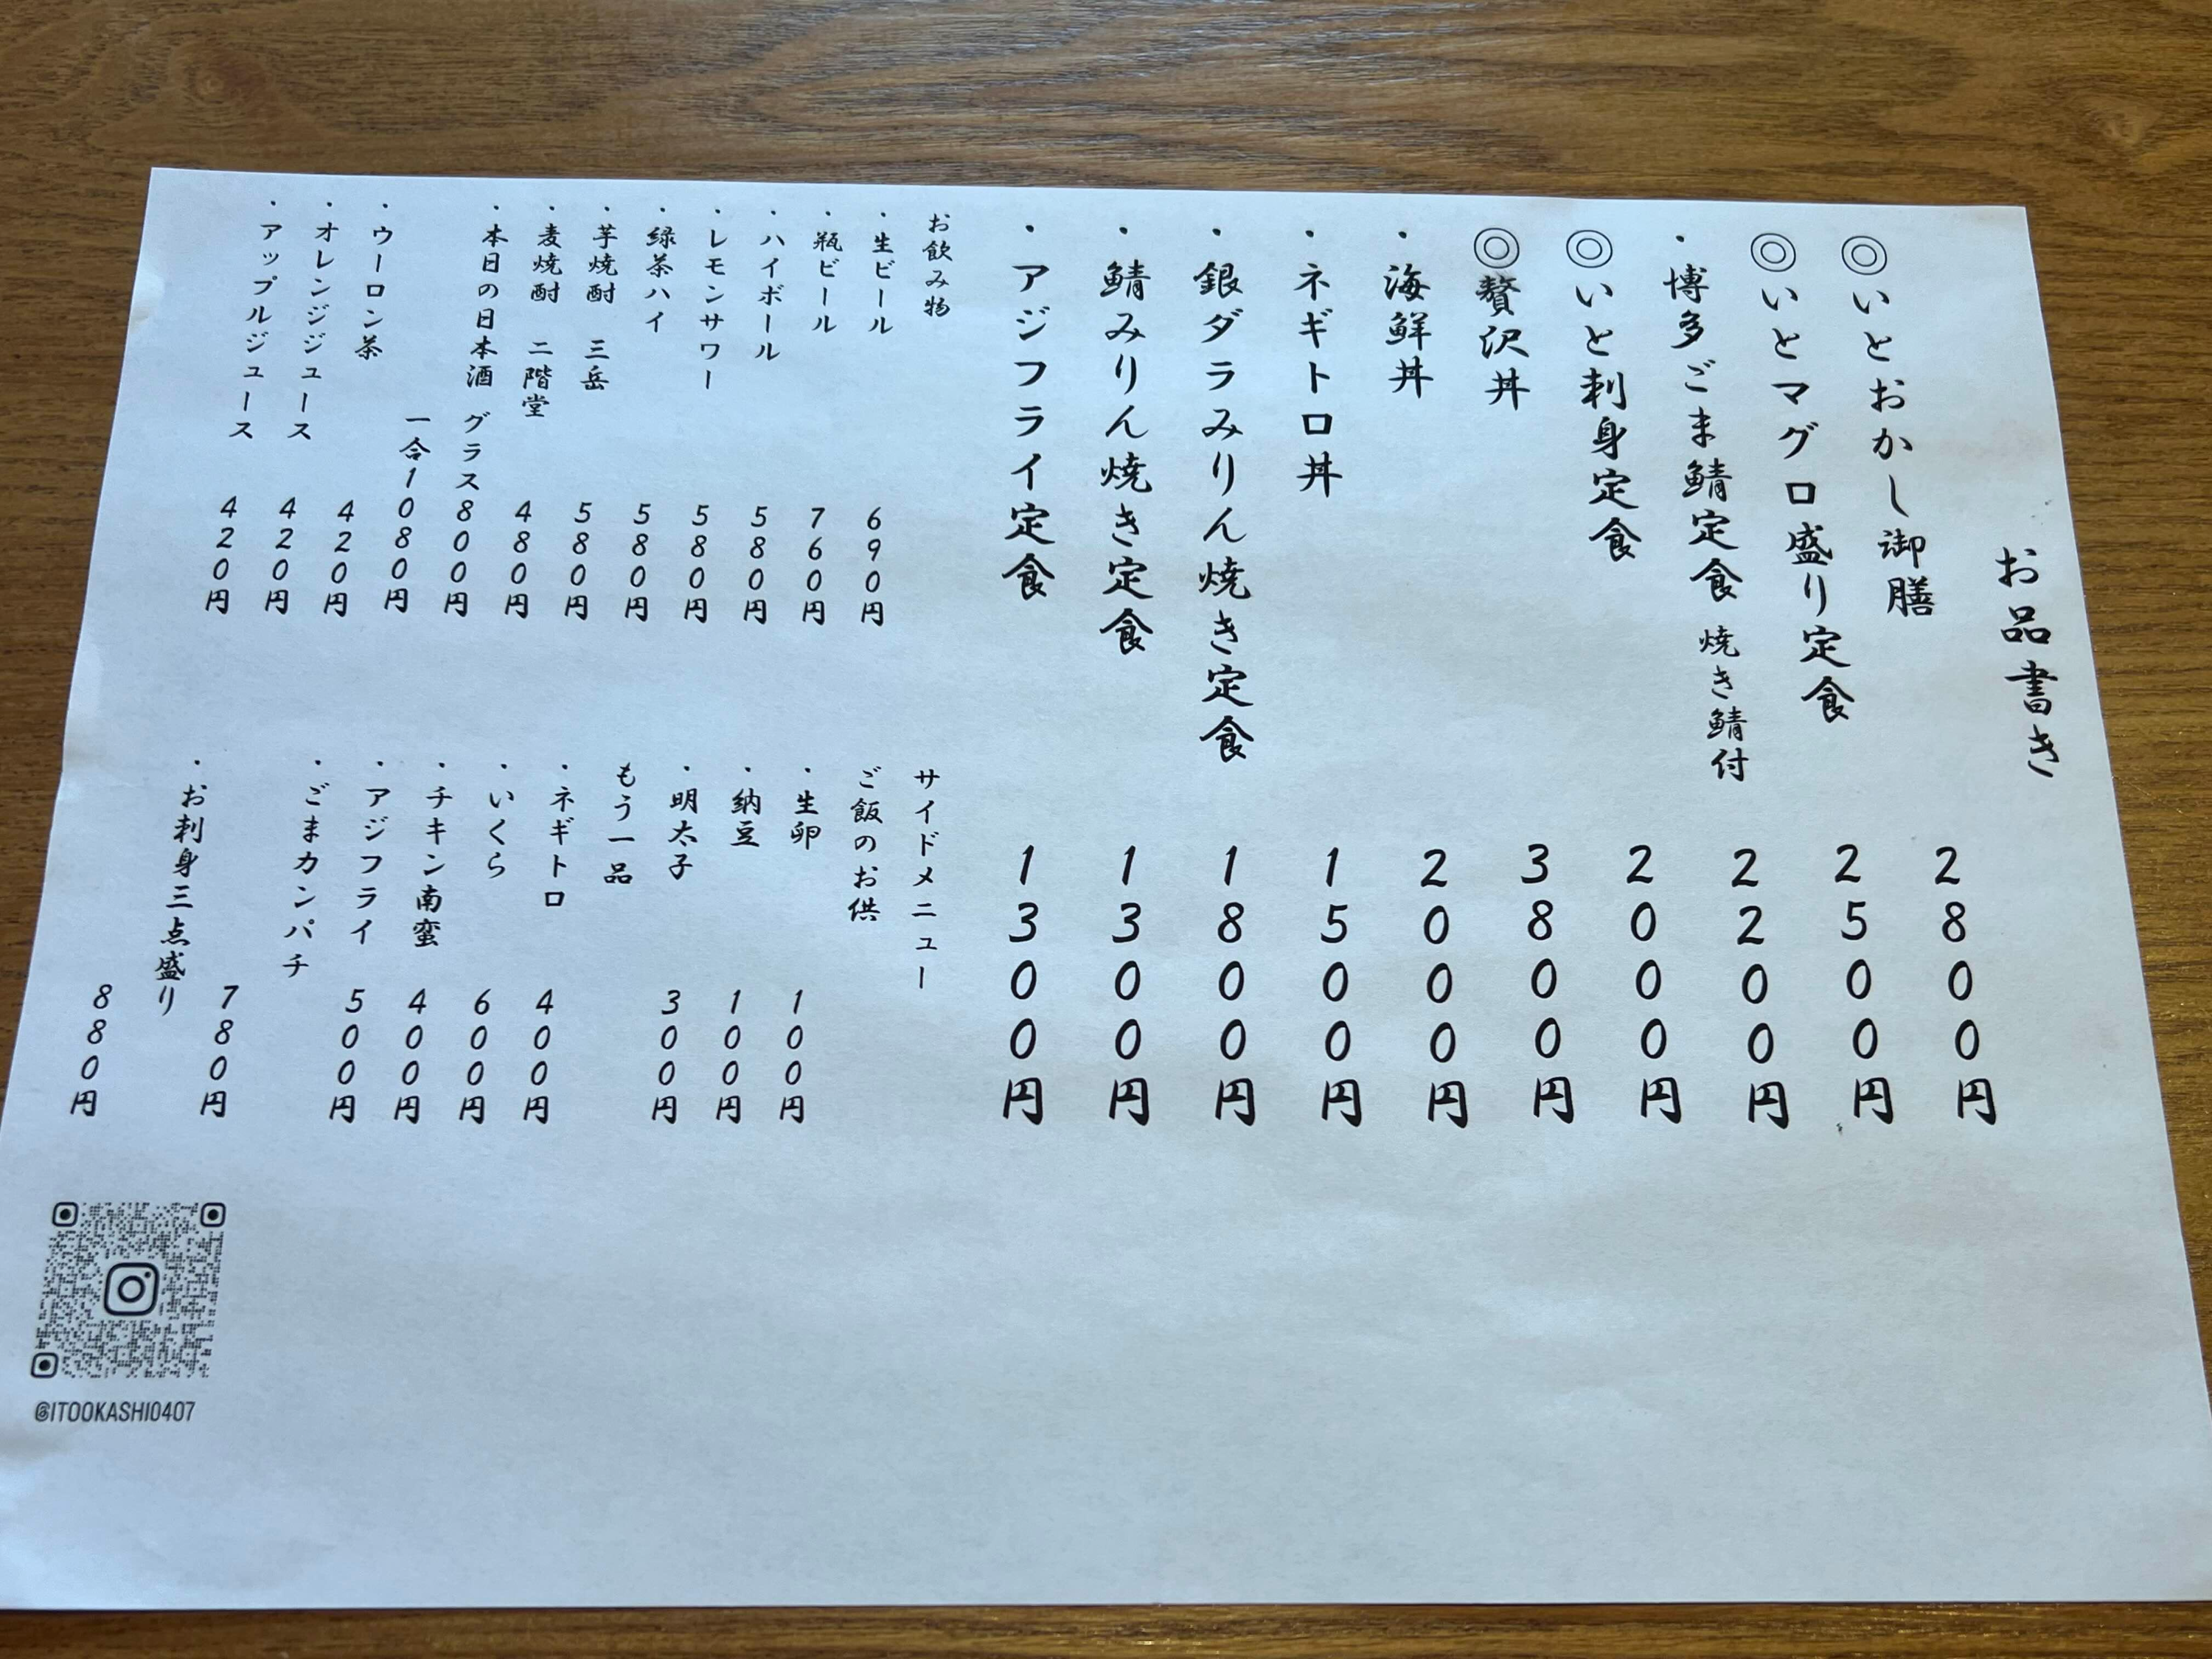 お品書き
◎いとおかし御膳 2800円
◎いとマグロ盛り定食 2500円
・博多ごま鯖定食 焼き鯖付 2200円
◎いと刺身定食 2000円
◎贅沢丼 3800円
・海鮮丼 2000円
・ネギトロ丼 1500円
・銀ダラみりん焼き定食 1800円
・鯖みりん焼き定食 1300円
・アジフライ定食 1300円
お飲み物
・生ビール 690円
・瓶ビール 760円
・ハイボール 580円
・レモンサワー 580円
・緑茶ハイ 580円
・芋焼酎 三岳 580円
・麦焼酎 二階堂 480円
・本日の日本酒 グラス800円
一合1080円
・ウーロン茶 420円
・オレンジジュース 420円
・アップルジュース 420円
サイドメニュー
ご飯のお供
・生卵 100円
・納豆 100円
・明太子 300円
もう一品
・ネギトロ 400円
・いくら 600円
・チキン南蛮 400円
・アジフライ 500円
・ごまカンパチ 780円
・お刺身三点盛り 880円
@ITOOKASHI0407